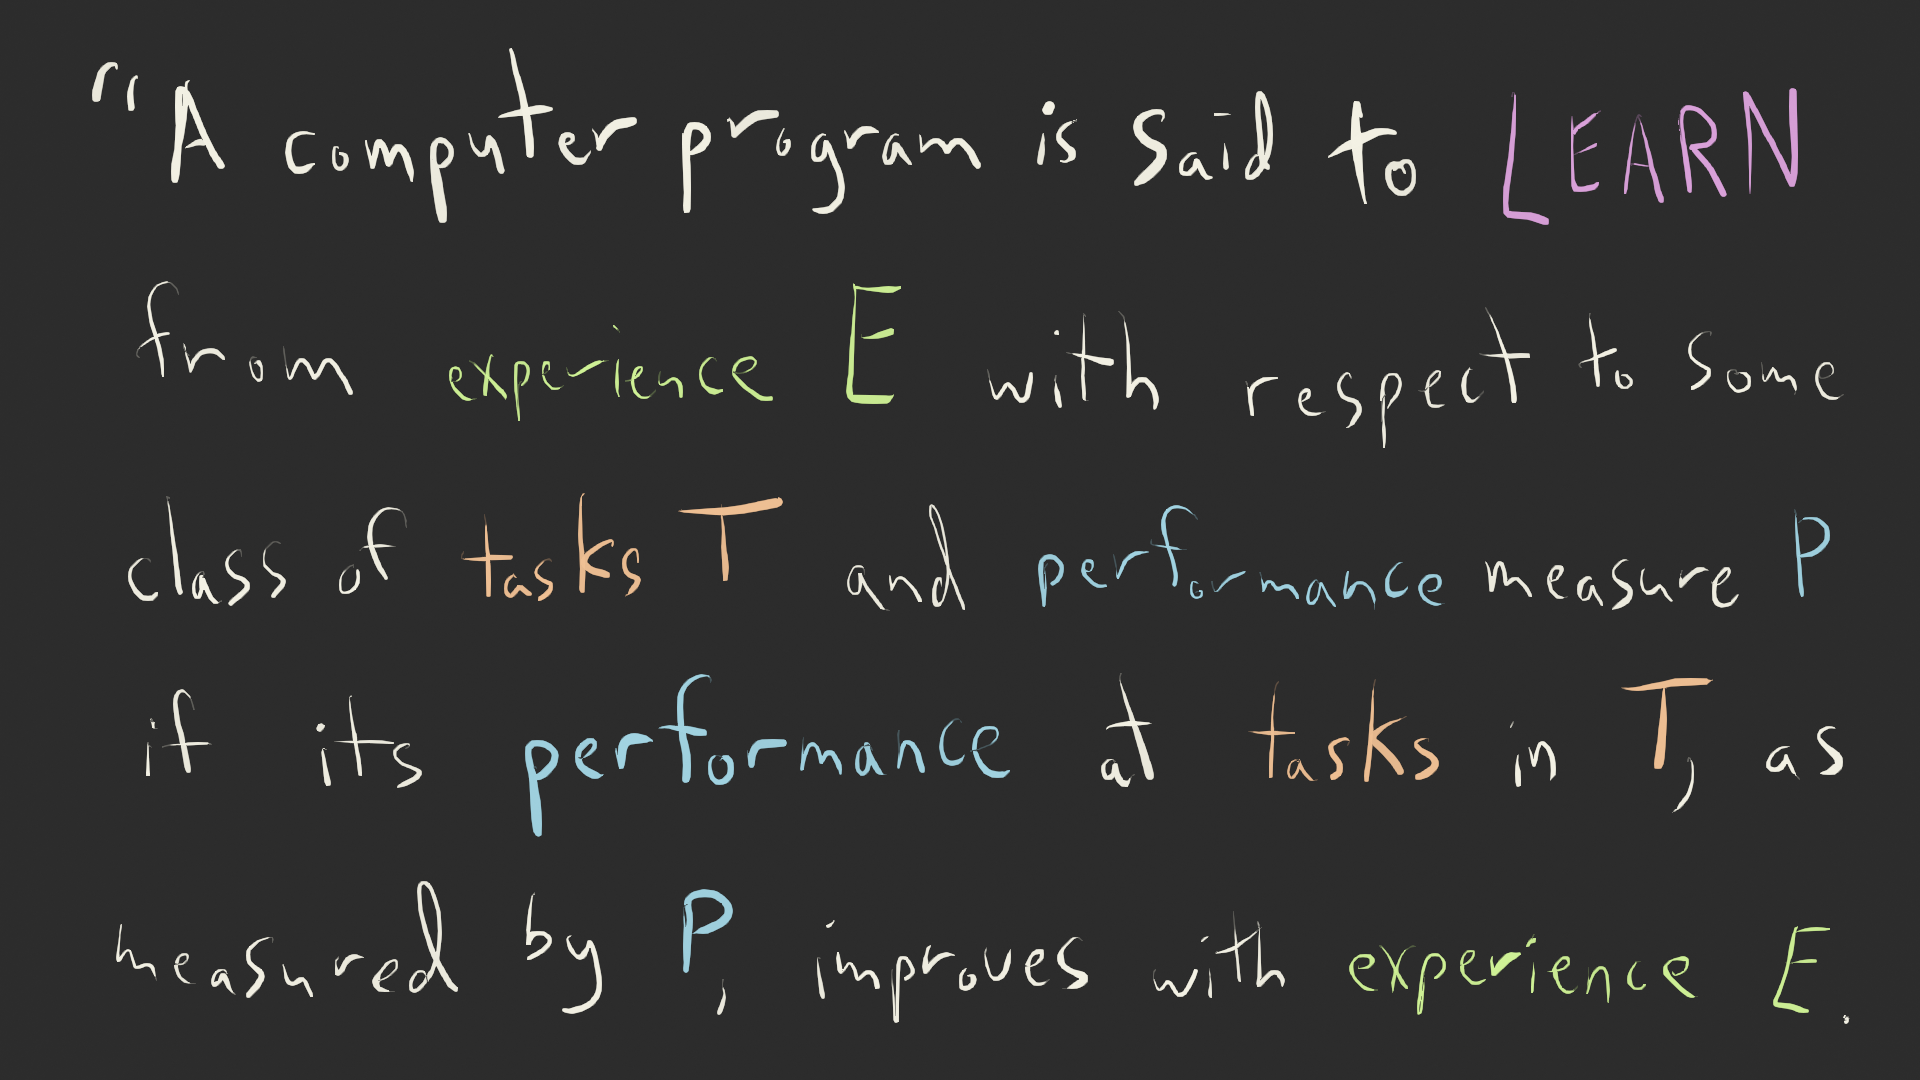 "A computer program is said to LEARN
from experience E with respect to some
class of tasks T and performance measure P
if its performance at tasks in T, as
measured by P, improves with experience E.